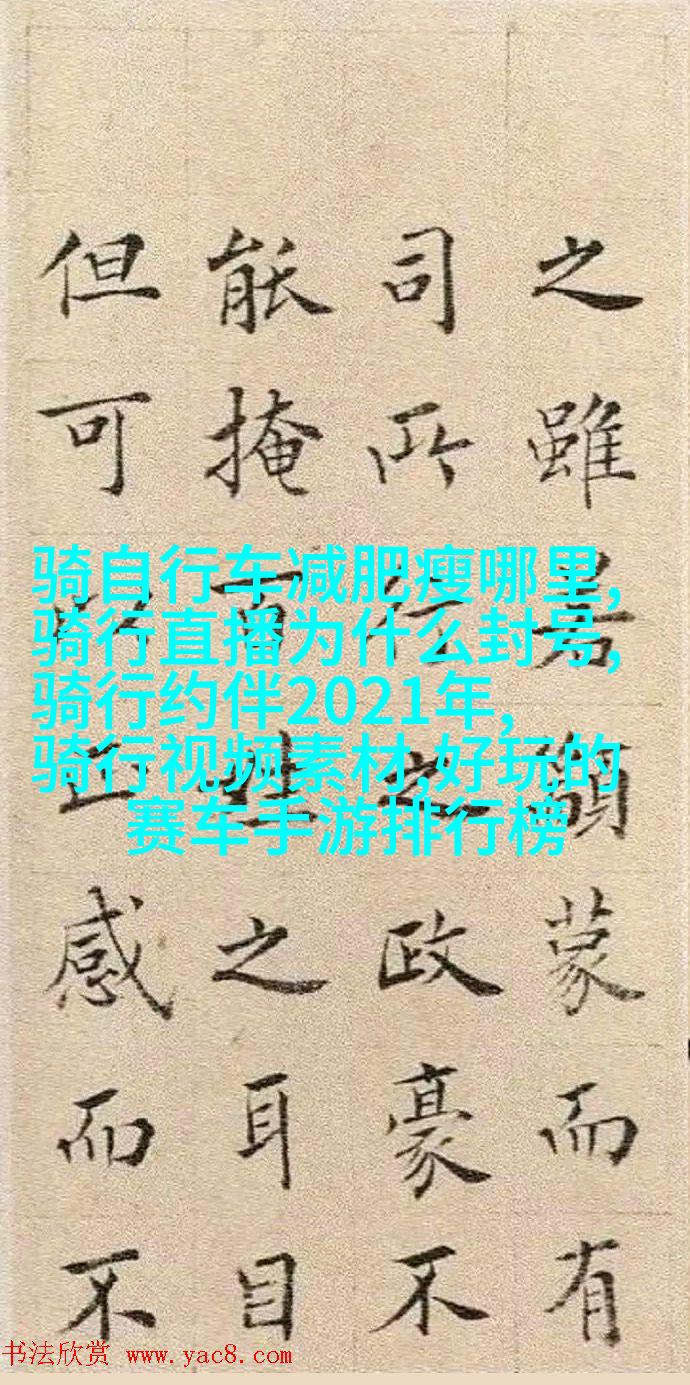 之雖若蒙而有
司所行之政豪不
能掩百姓之耳目
但可上感而不
骑自行车减肥瘦哪里,
骑行直播为什么封号,
骑行约伴2021年,
骑行视频素材,好玩的
赛车手游排行榜
书法欣赏 www.yac8.com